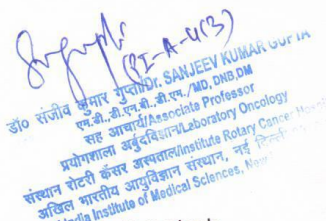 (PI-A-4(3))
डॉ० संजीव कुमार गुप्ता/Dr. SANJEEV KUMAR GUPTA
एम.बी.,डी.एन.बी.,डी.एम./MD, DNB,DM
सह आचार्य/Associate Professor
प्रयोगशाला अर्बुदविज्ञान/Laboratory Oncology
संस्थान रोटरी कैंसर अस्पताल/Institute Rotary Cancer
अखिल भारतीय आयुर्विज्ञान संस्थान, नई दिल्ली
India Institute of Medical Sciences, New